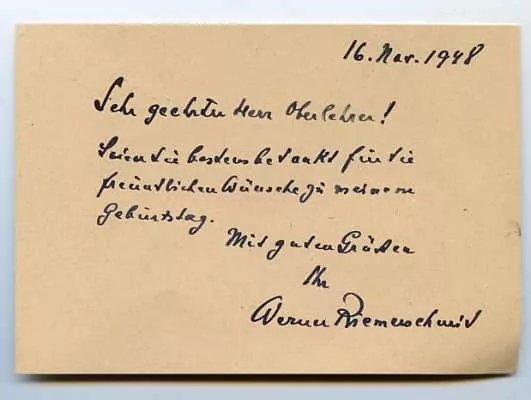 16. Nov. 1948
Sehr geehrter Herr Oberlehrer!
Seien Sie bestens bedankt für die
freundlichen Wünsche zu meinem
Geburtstag.
Mit guten Grüßen
Ihr
Werner Riemerschmid